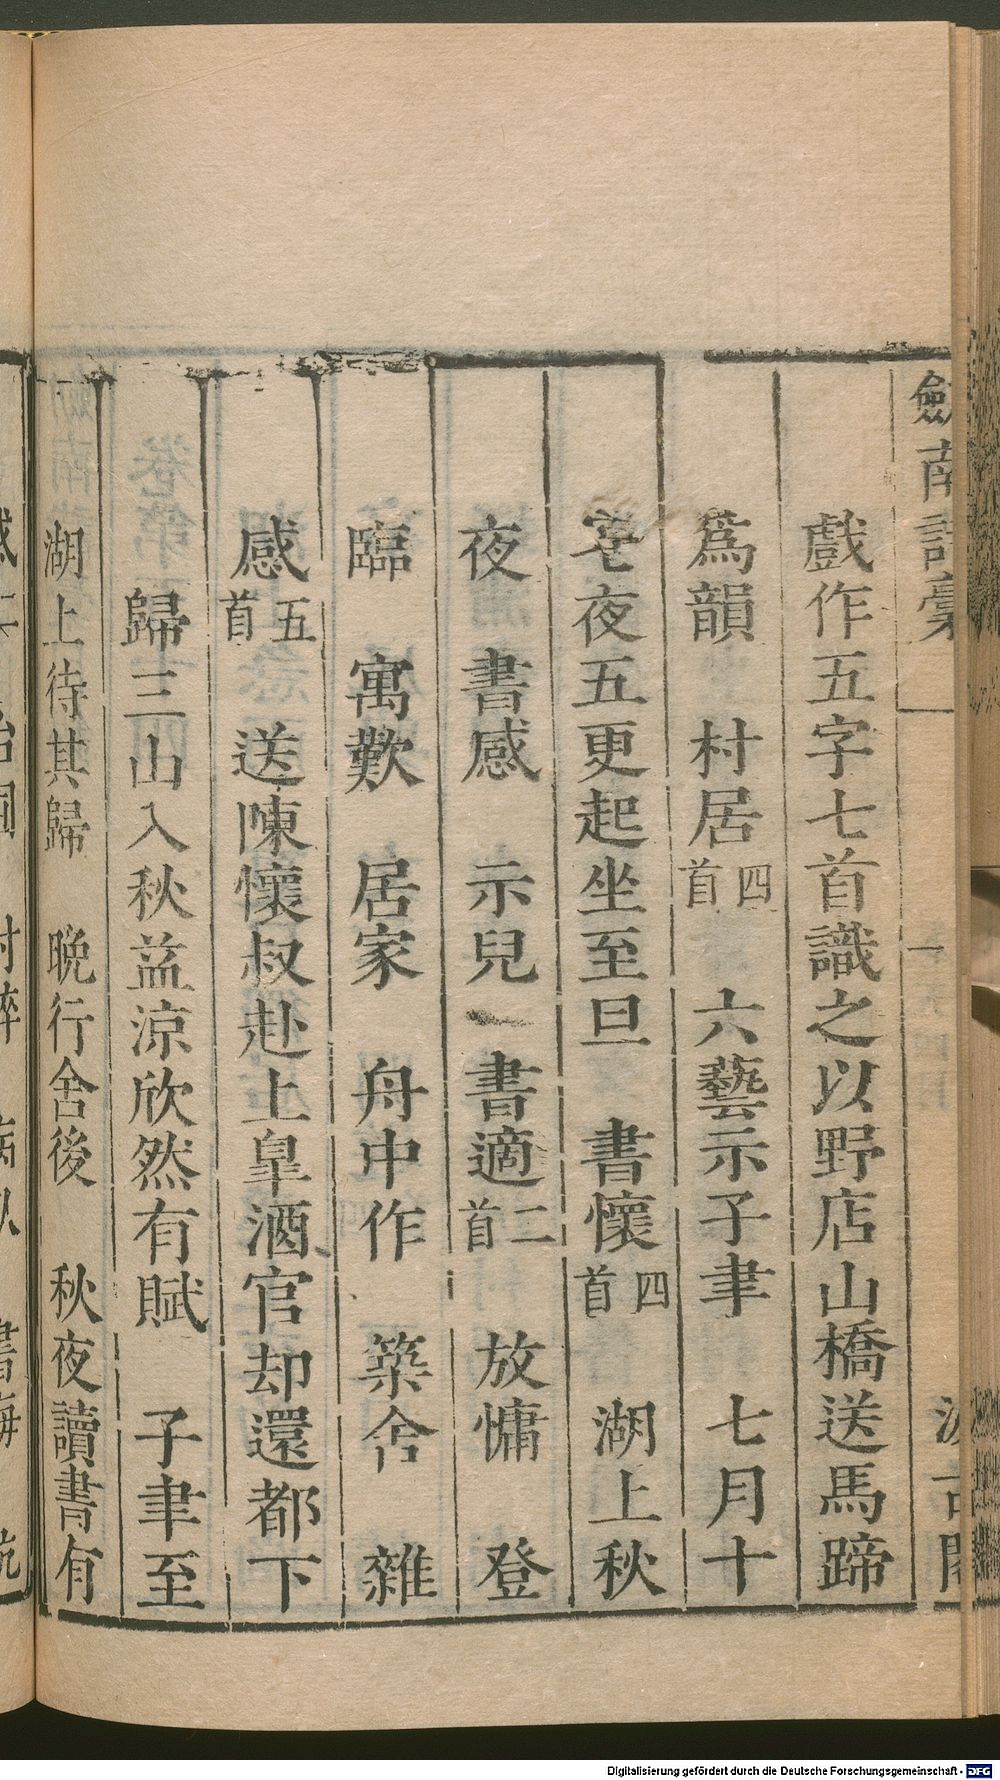 劒南詩稾
戲作五字七首識之以野店山橋送馬蹄
爲韻　村居四首　六藝示子聿　七月十
七夜五更起坐至旦　書懷四首　湖上秋
夜　書感　示兒　書適二首　放慵　登
臨　寓歎　居家　舟中作　築舍　雜
感五首　送陳懷叔赴上皐酒官却還都下
歸三山入秋益涼欣然有賦　子聿至
湖上待其歸　晩行舍後　秋夜讀書有
Digitalisierung gefördert durch die Deutsche Forschungsgemeinschaft - DFG